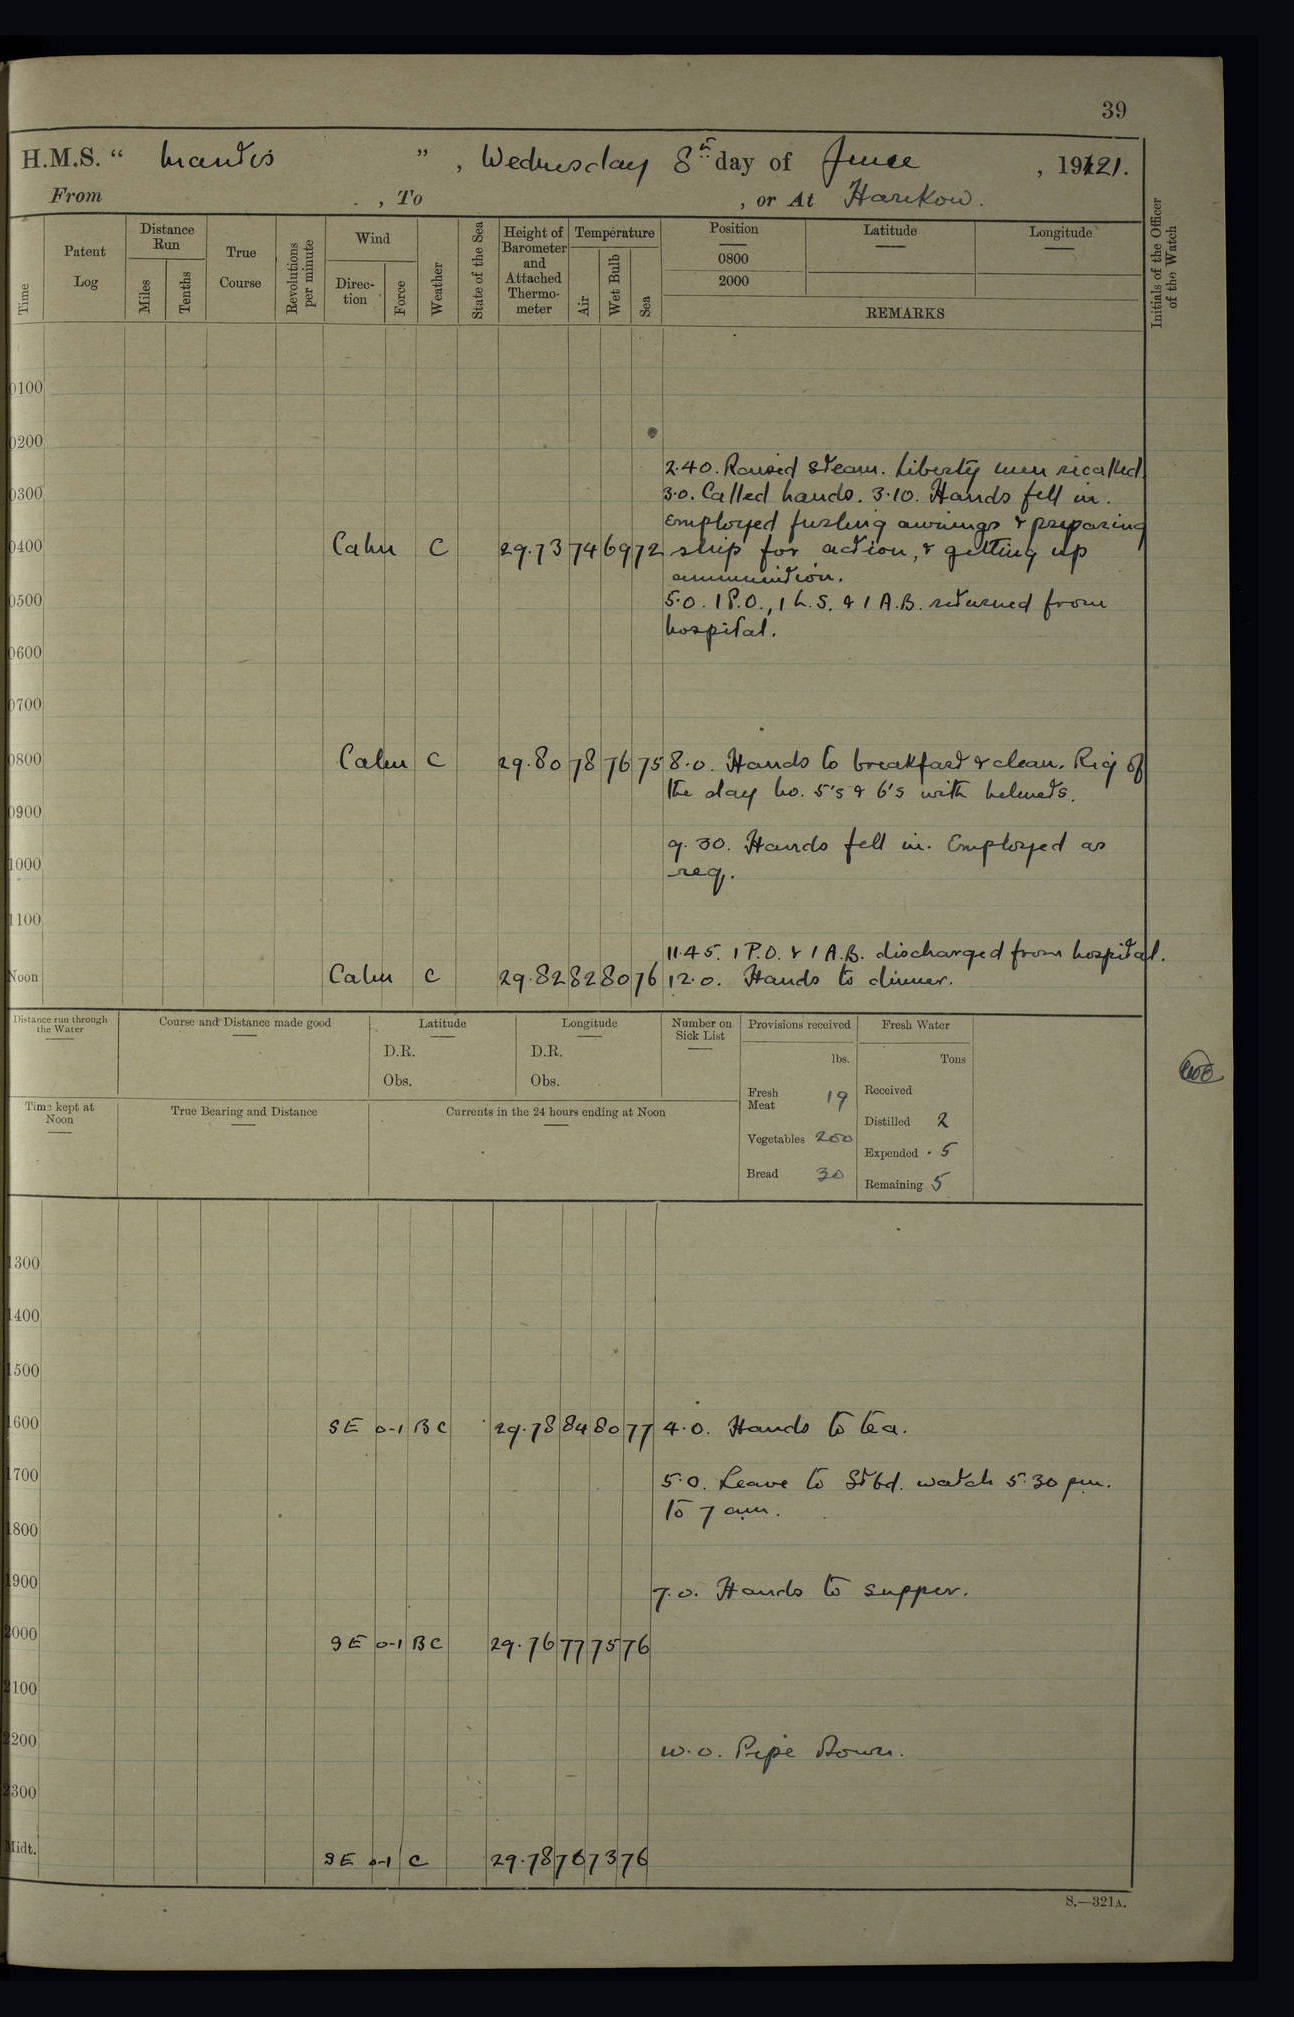 39
H.M.S. " Mantis " , Wednesday 8th day of June , 1921.
From , To , or At Hankow.
Time
Patent Log
Distance Run
Miles
Tenths
True Course
Revolutions per minute
Wind
Direction
Force
Weather
State of the Sea
Height of Barometer and Attached Thermometer
Temperature
Air
Wet Bulb
Sea
Position
0800
2000
Latitude
Longitude
REMARKS
Initials of the Officer of the Watch
0100
0200
2.40. Raised steam. Liberty men recalled.
0300 3.0. Called hands. 3.10. Hands fell in.
Employed furling awnings & preparing
0400 Calm C 29.73 74 69 72 ship for action, & getting up
ammunition.
0500 5.0. 1 P.O., 1 L.S. & 1 A.B. returned from
hospital.
0600
0700
0800 Calm C 29.80 78 76 75 8.0. Hands to breakfast & clean. Rig of
the day No. 5's & 6's with helmets.
0900
9.30. Hands fell in. Employed as
1000 req.
1100
11.45. 1 P.O. & 1 A.B. discharged from hospital.
Noon Calm C 29.82 82 80 76 12.0. Hands to dinner.
Distance run through the Water
Course and Distance made good
Latitude
D.R.
Obs.
Longitude
D.R.
Obs.
Number on Sick List
Provisions received
lbs.
Fresh Meat 19
Vegetables 200
Bread 30
Fresh Water
Tons
Received
Distilled 2
Expended . 5
Remaining 5
Time kept at Noon
True Bearing and Distance
Currents in the 24 hours ending at Noon
1300
1400
1500
1600 SE 0-1 BC 29.78 84 80 77 4.0. Hands to tea.
1700 5.0. Leave to Stbd. watch 5.30 pm.
to 7 am.
1800
1900 7.0. Hands to supper.
2000 SE 0-1 BC 29.76 77 75 76
2100
2200 10.0. Pipe Down.
2300
Midt. SE 0-1 C 29.78 76 73 76
S.—321A.